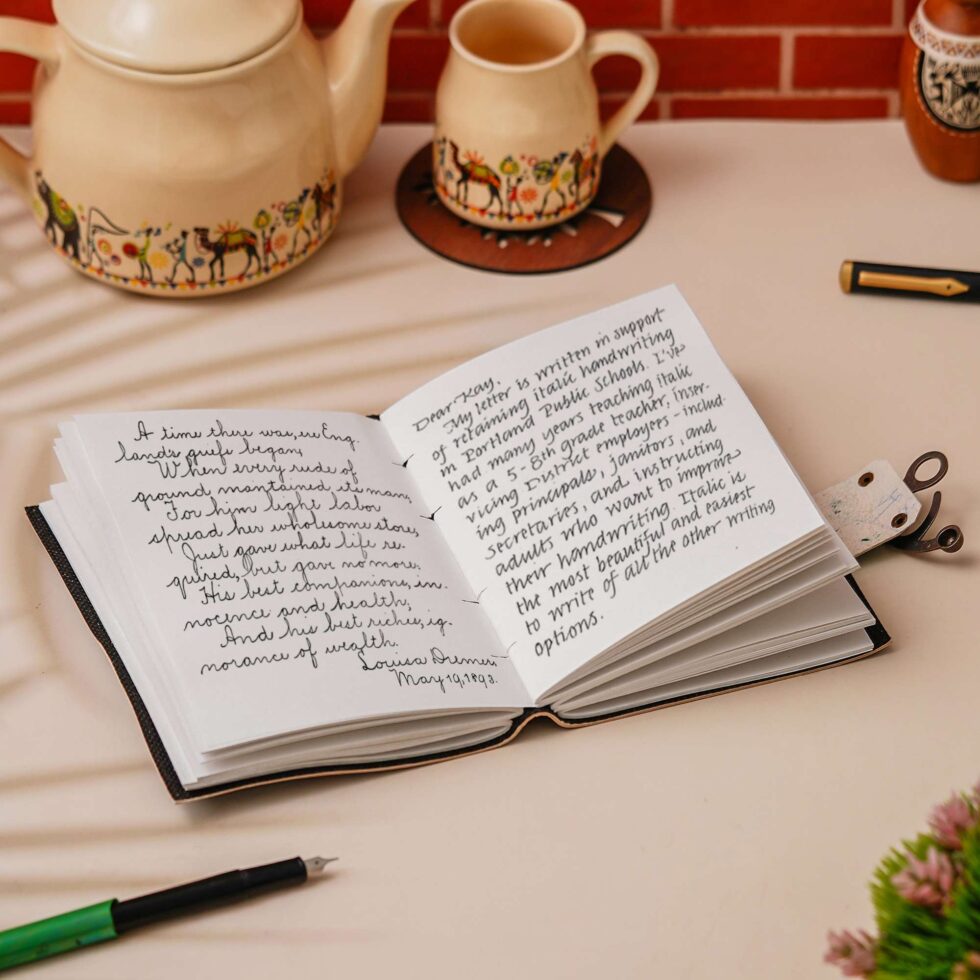 A time there was, ere Eng.
land's griefs began,
When every rude of
ground maintained its man,
For him light labor
spread her wholesome store,
Just gave what life re-
quired, but gave no more,
His best companions, in.
nocence and health,
And his best riches, ig.
norance of wealth.
Louisa
May 19, 1893.
Dear Kay,
My letter is written in support
of retaining italic handwriting
in Portland Public Schools. I've
had many years teaching italic
as a 5-8th grade teacher, inser.
vicing District employers - includ.
ing principals, janitors, and
secretaries, and instructing
adults who want to improve
their handwriting. Italic is
the most beautiful and easiest
to write of all the other writing
options.